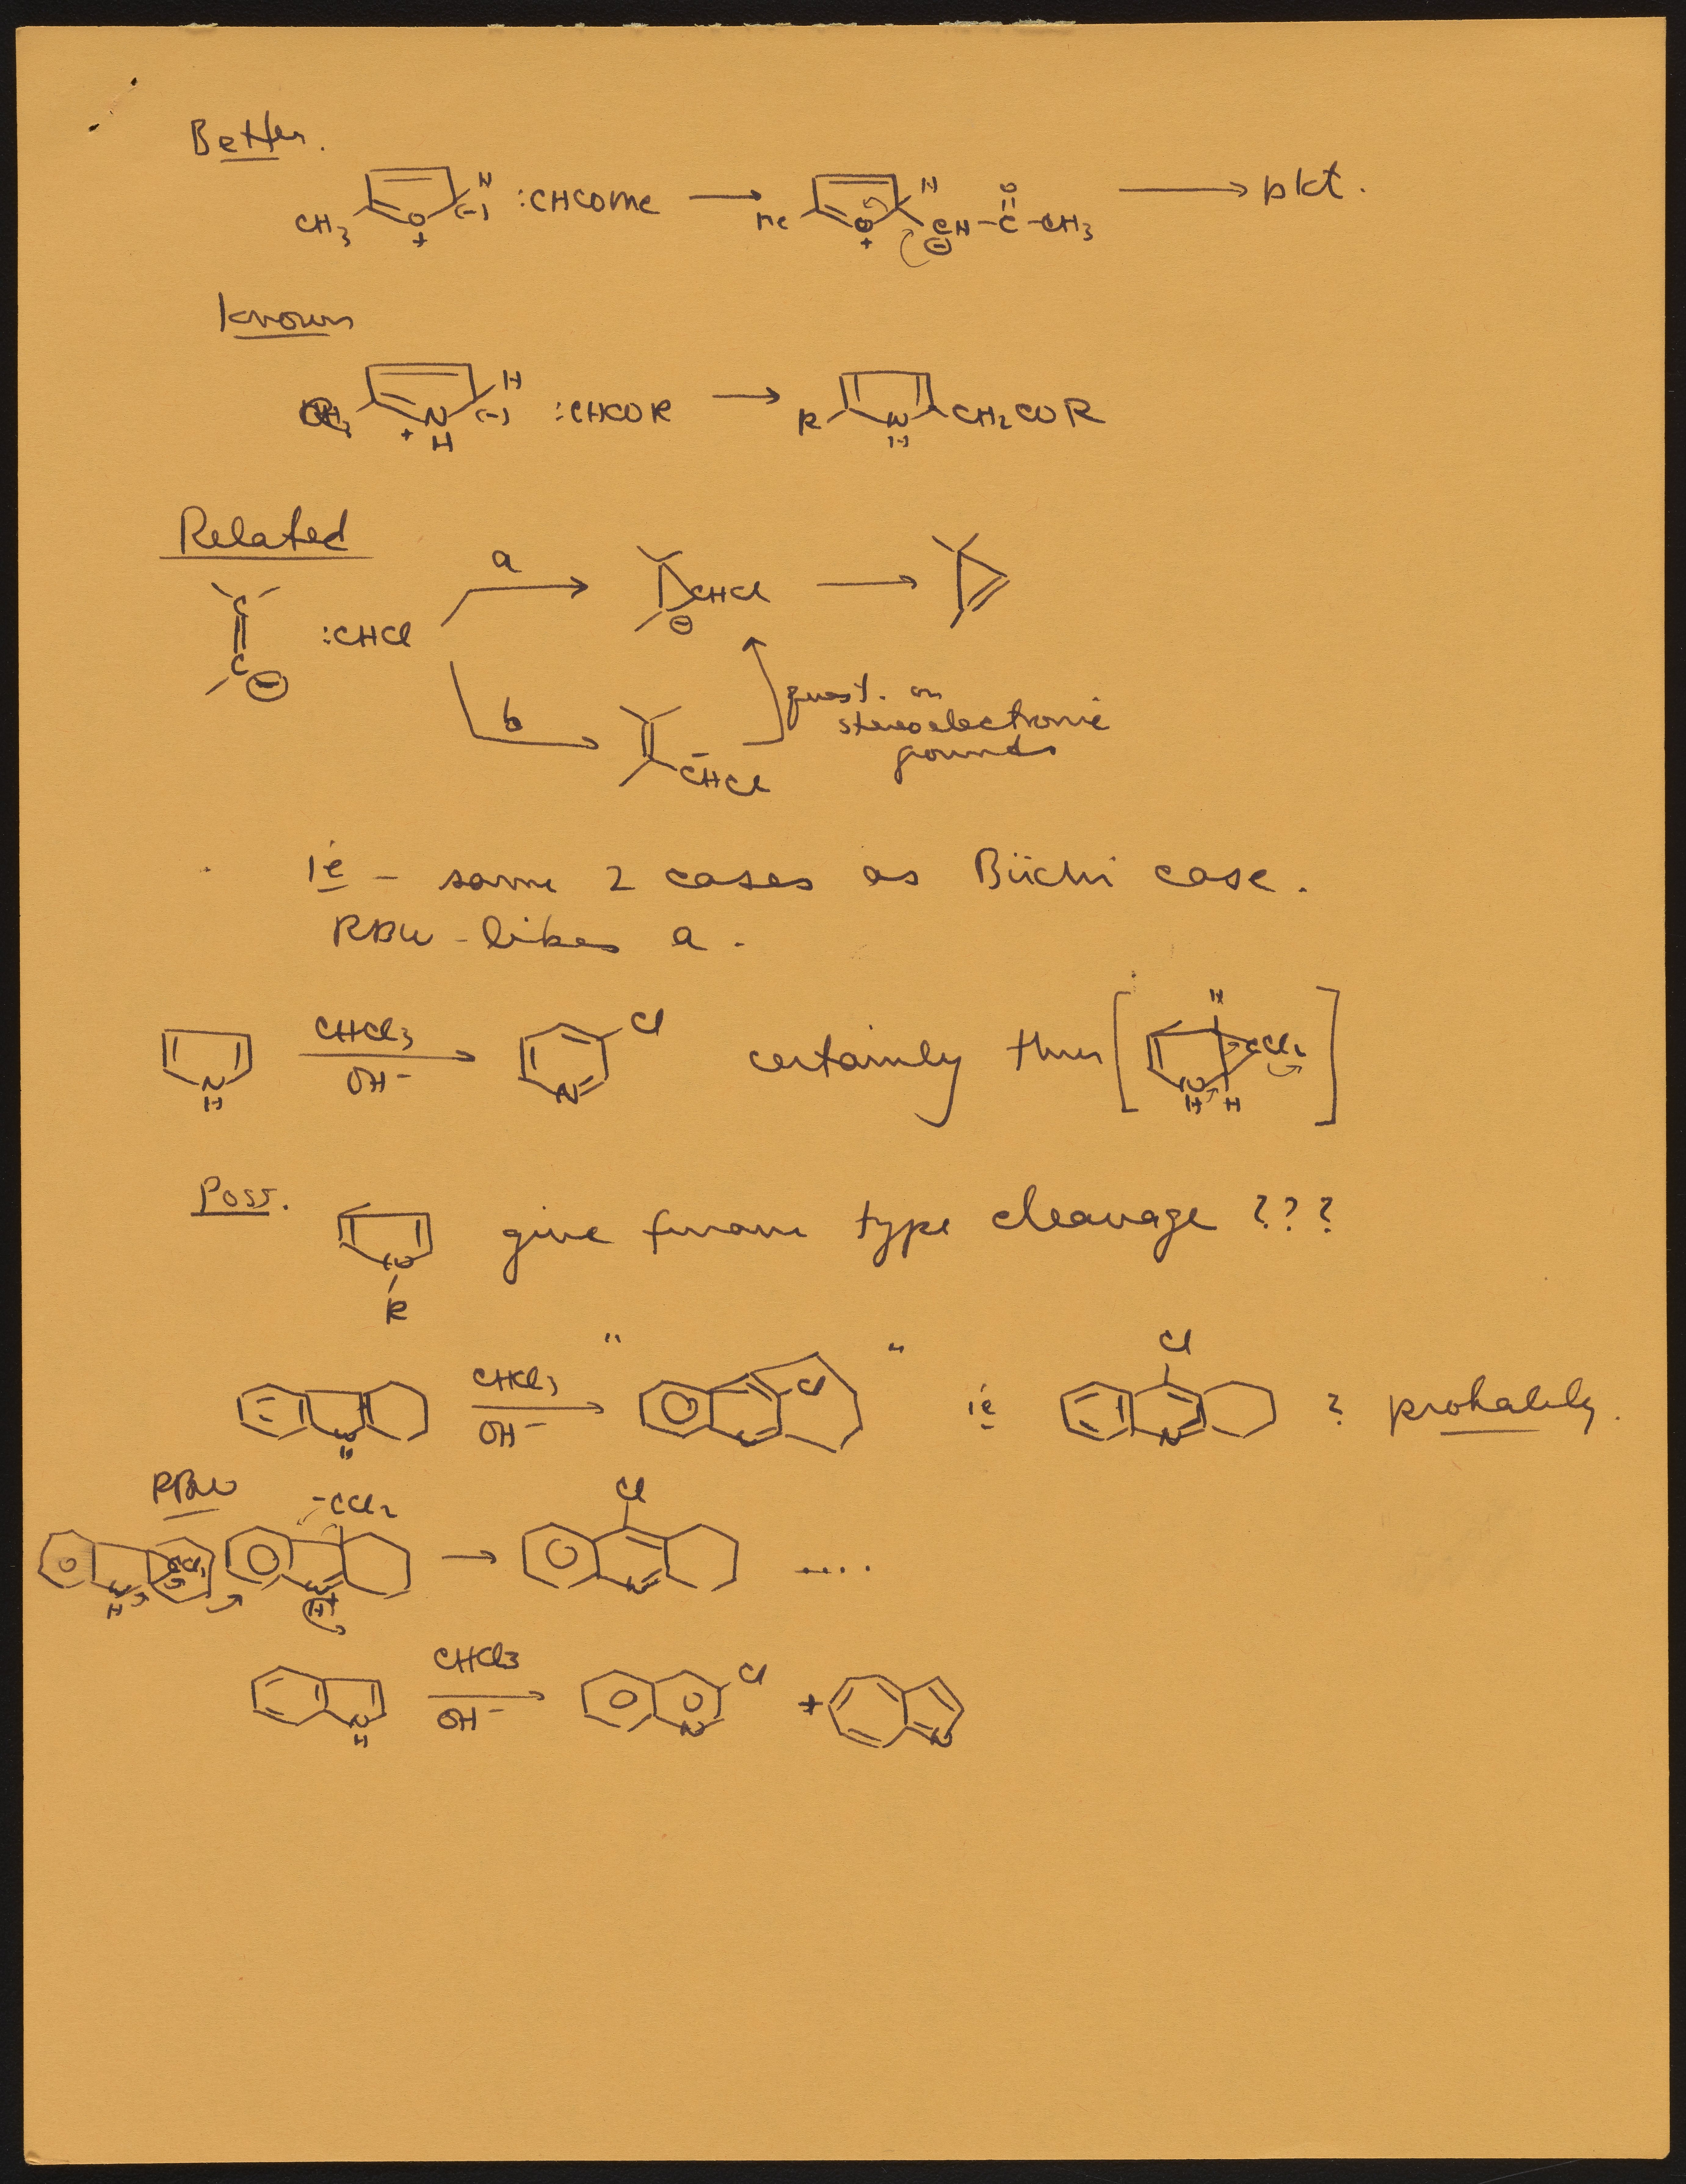 Better.
CH3 O + H (-) :CHCOMe → Me O + H CH ⊖ - C - CH3 O → pkt.
Known
N H + H (-) :CHCOR → R N H CH2COR
Related
a
C C ⊖ :CHCl CHCl ⊖ →
b
CHCl -
quest. on
stereoelectronic
grounds
ie - same 2 cases as Büchi case.
RBW - likes a.
N H CHCl3 OH- → N Cl certainly thru [ H CCl2 N H H ]
Poss. N R give furan type cleavage ???
N H CHCl3 OH- → " N Cl " ie Cl N ? probably.
RBW
N H CCl2 -CCl2 N H + → Cl N ....
N H CHCl3 OH- → N Cl + N